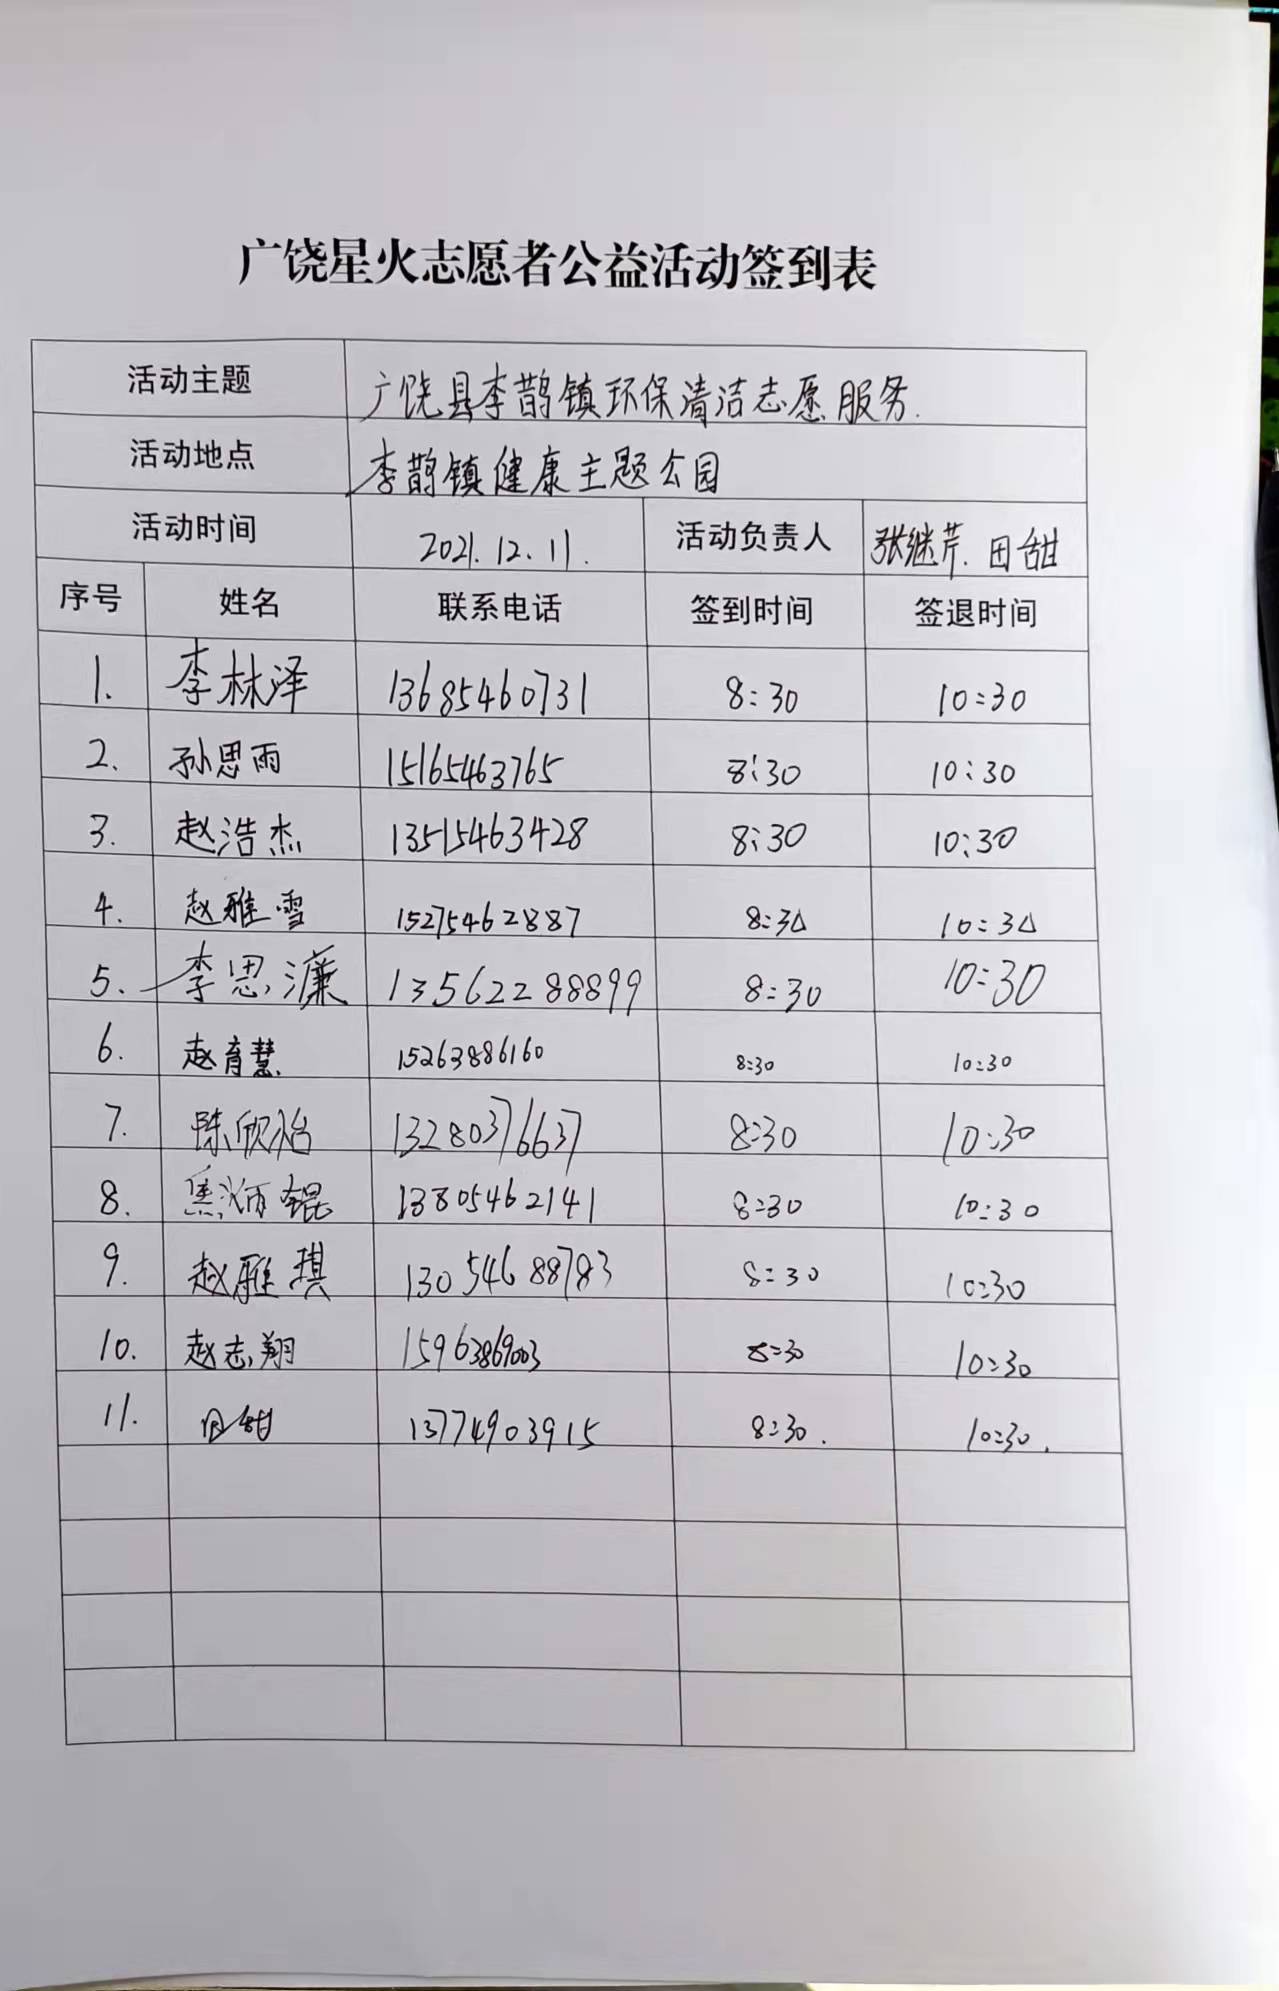 广饶星火志愿者公益活动签到表
活动主题 广饶县李鹊镇环保清洁志愿服务.
活动地点 李鹊镇健康主题公园
活动时间 2021.12.11. 活动负责人 张继芹.田甜
序号 姓名 联系电话 签到时间 签退时间
1. 李林泽 13685460731 8:30 10:30
2. 孙思雨 15165463765 8:30 10:30
3. 赵浩杰 13515463428 8:30 10:30
4. 赵雅雪 15275462887 8:30 10:30
5. 李思濂 13562288899 8:30 10:30
6. 赵育慧 15263886160 8:30 10:30
7. 陈欣怡 13280376637 8:30 10:30
8. 焦炳锟 13805462141 8:30 10:30
9. 赵雅琪 13054688783 8:30 10:30
10. 赵志翔 15963869003 8:30 10:30
11. 田甜 13774903915 8:30. 10:30.